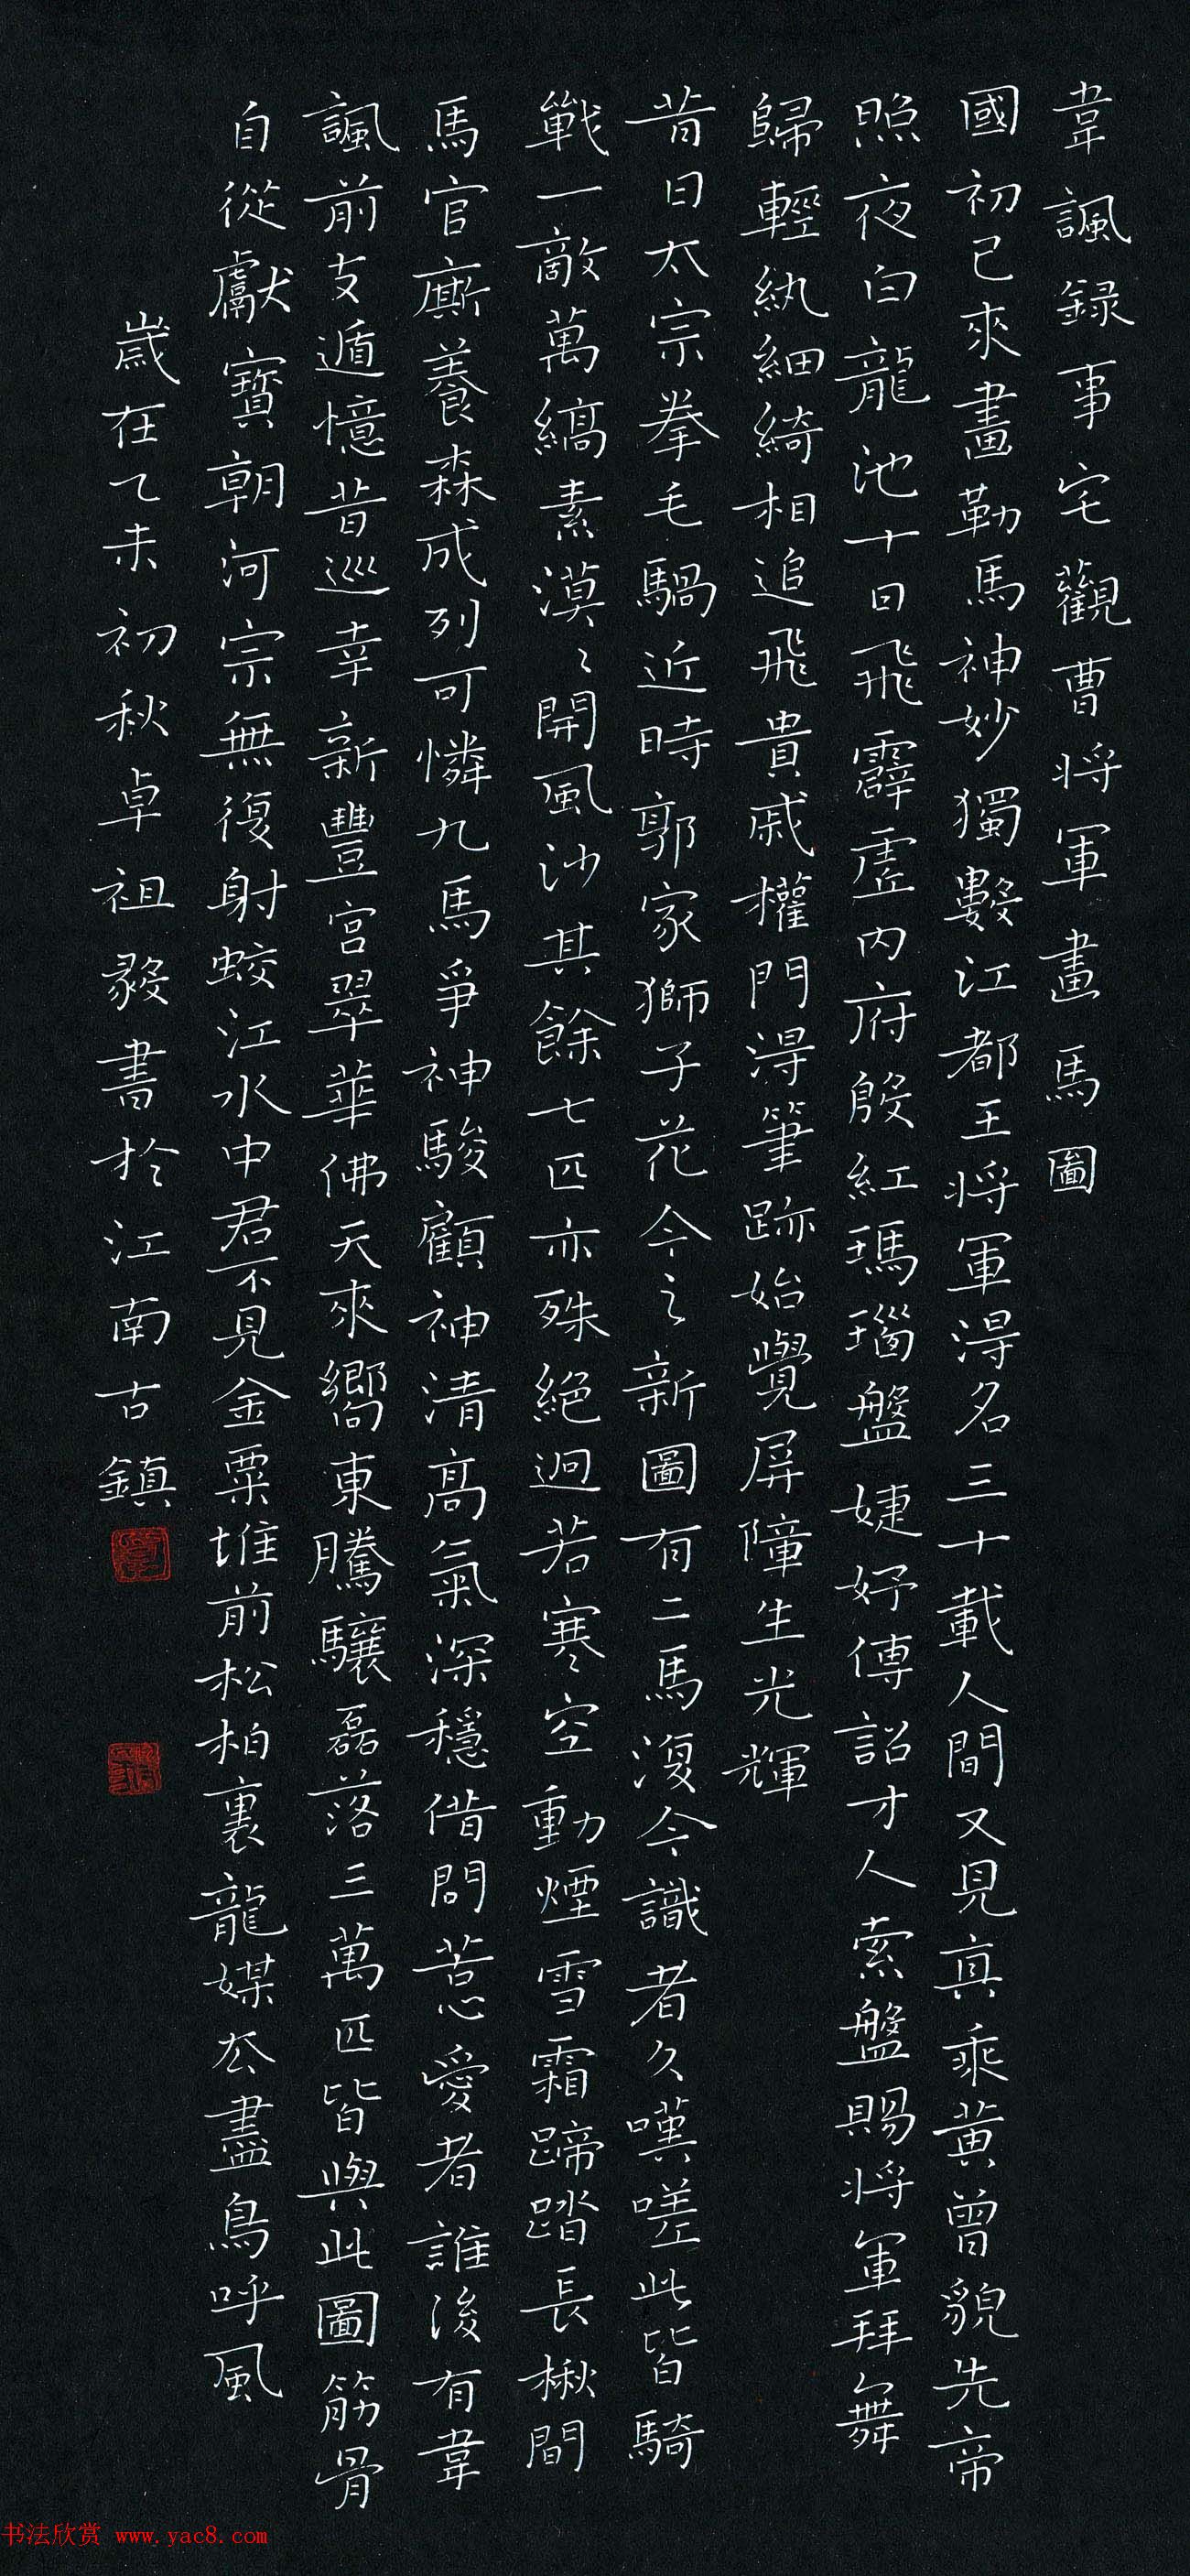 韋諷録事宅觀曹将軍畫馬圖
國初已來畫勒馬神妙獨數江都王将軍得名三十載人間又見真乘黄曾貌先帝
照夜白龍池十日飛霹靂内府殷紅瑪瑙盤婕妤傳詔才人索盤賜将軍拜舞
歸輕紈細綺相追飛貴戚權門得筆跡始覺屏障生光輝
昔日太宗拳毛騧近時郭家獅子花今之新圖有二馬復令識者久嘆嗟此皆騎
戰一敵萬縞素漠〻開風沙其餘七匹亦殊絕迥若寒空動煙雪霜蹄踏長楸間
馬官廝養森成列可憐九馬爭神駿顧神清高氣深穩借問苦愛者誰後有韋
諷前支遁憶昔巡幸新豐宮翠華佛天來嚮東騰驤磊落三萬匹皆與此圖筋骨
自從獻寶朝河宗無復射蛟江水中君不見金粟堆前松柏裏龍媒去盡鳥呼風
歲在乙未初秋卓祖毅書於江南古鎮
书法欣赏 www.yac8.com